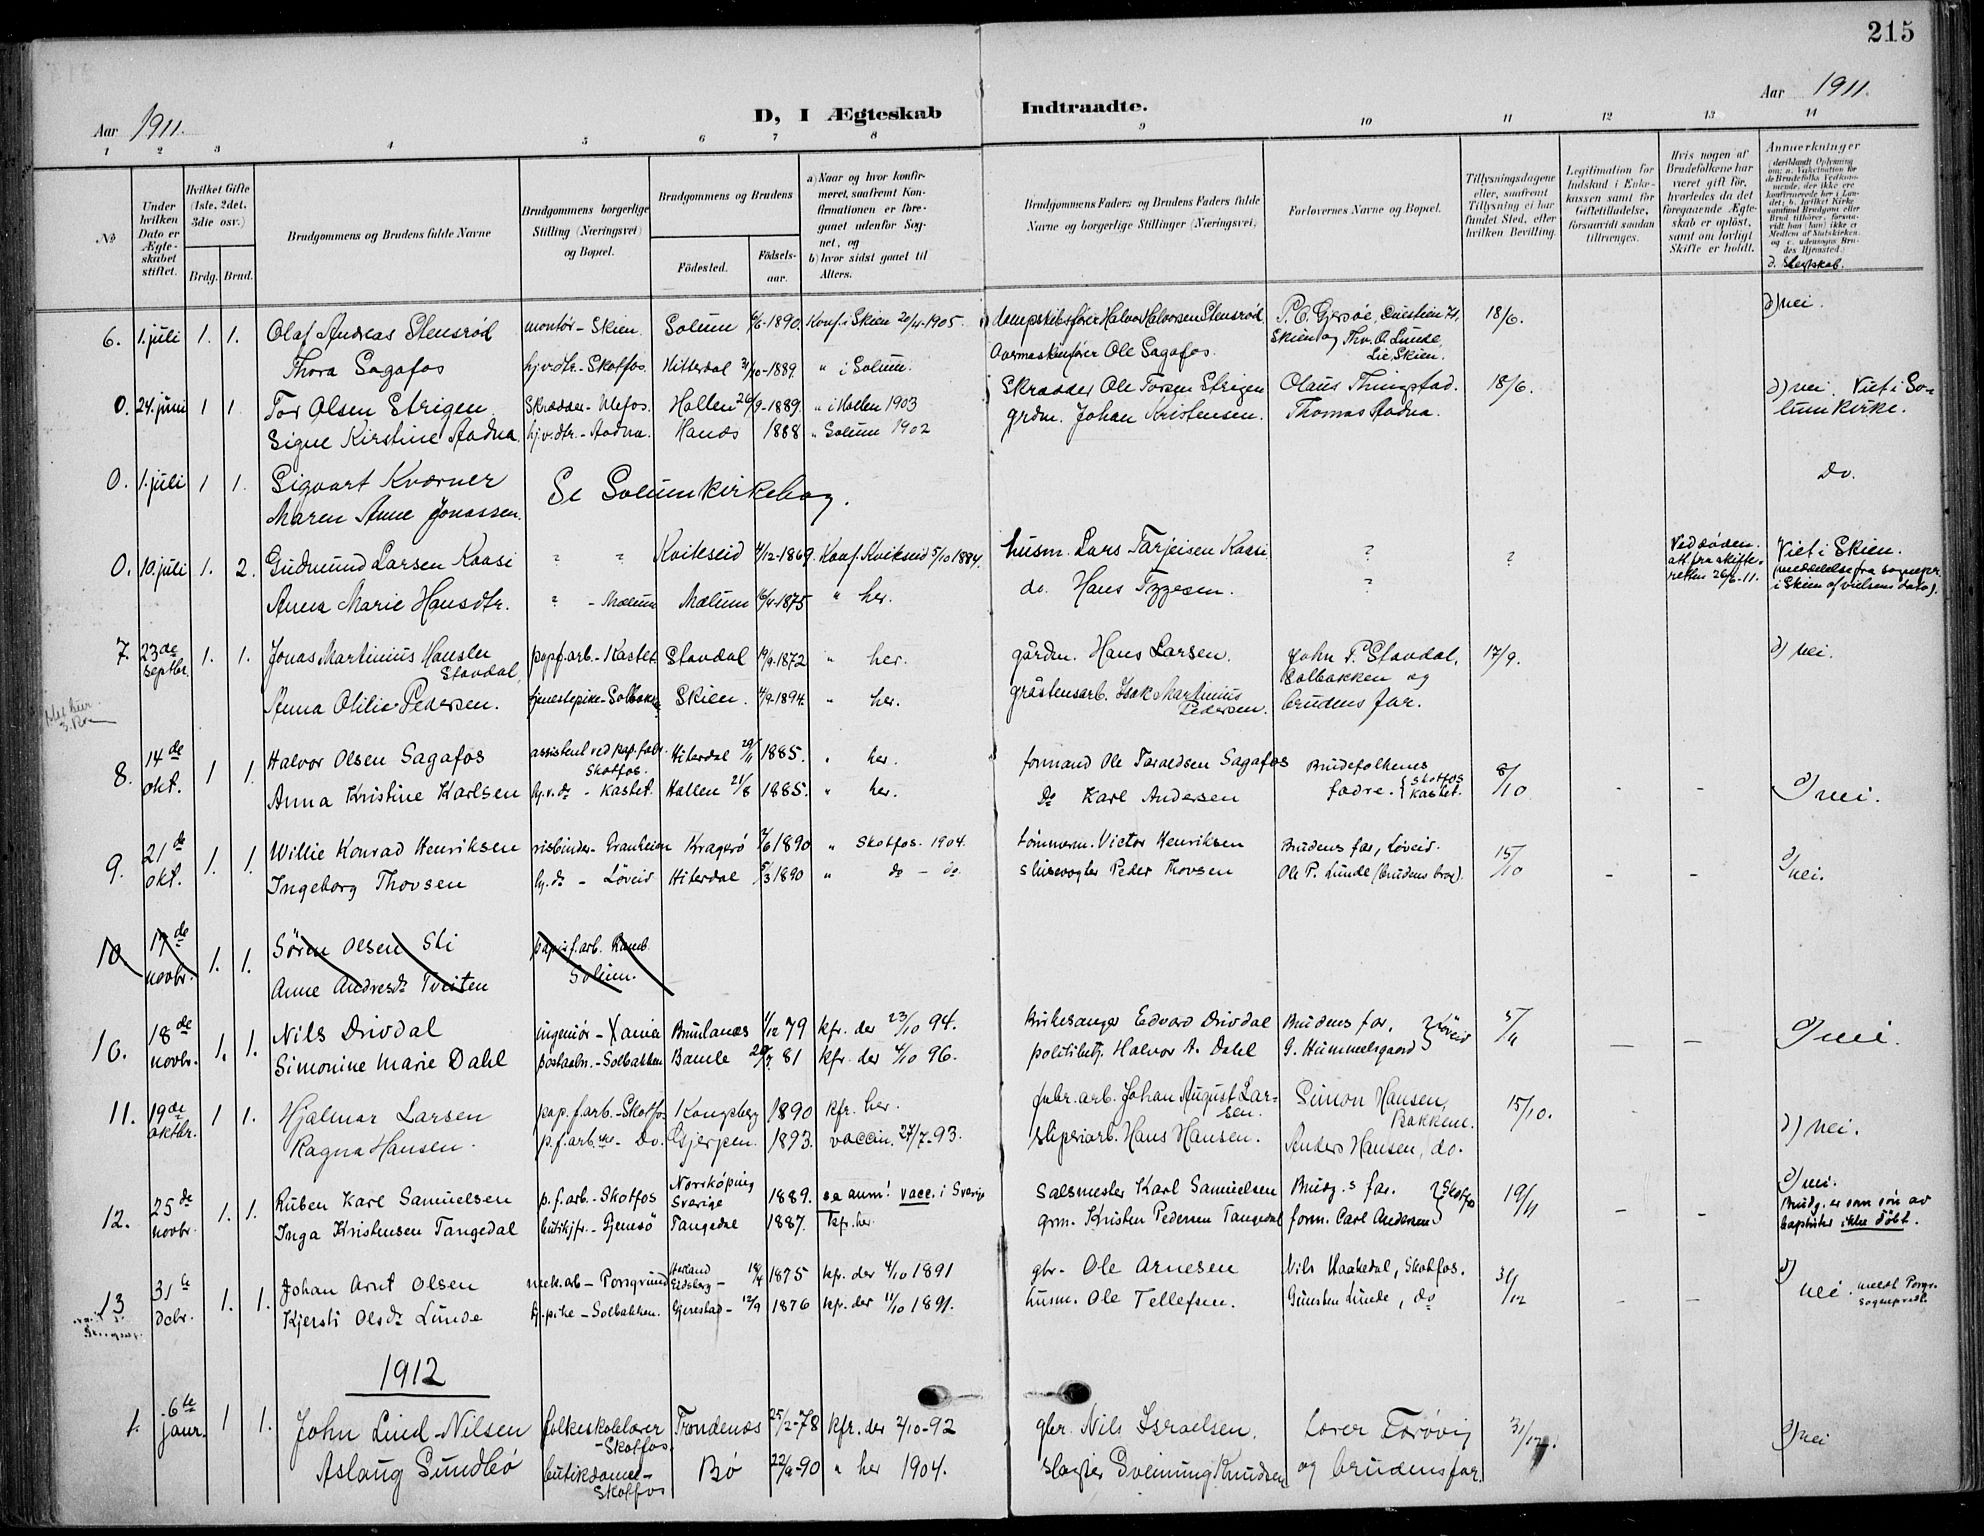 215
Aar 1911.
D, I Ægteskab Indtraadte.
Aar 1911.
1 2 3 4 5 6 7 8 9 10 11 12 13 14
No
Under hvilken Dato er Ægteskabet stiftet.
Hvilket Gifte (1ste, 2det, 3die osv.)
Brdg. Brud.
Brudgommens og Brudens fulde Navne
Brudgommens borgerlige Stilling (Næringsvei) og Bopæl.
Brudgommens og Brudens
Födested. Födsels-aar.
a) Naar og hvor konfirmeret, saafremt Konfirmationen er foregaaet udenfor Sognet, og
b) hvor sidst gaaet til Alters.
Brudgommens Faders og Brudens Faders fulde Navne og borgerlige Stillinger (Næringsvei)
Forlovernes Navne og Bopæl.
Tillysningsdagene eller, saafremt Tillysning ei har fundet Sted, efter hvilken Bevilling.
Legitimation for Indskud i Enkekassen samt for Giftetilladelse, forsaavidt saadan tiltrænges.
Hvis nogen af Brudefolkene har været gift för, hvorledes da det foregaaende Ægteskab er oplöst, samt om lovligt Skifte er holdt.
Anmerkninger
d. Slegtskab.
6. 1. juli 1. 1. Olaf Andreas Stensrød montør - Skien. Solum 6/6-1890. Konf. i Skien 20/4-1905. dampskibsfører Halvor Halvorsen Stensrød. 18/6. d) nei.
Thora Sagafos hjv. dtr. - Skotfos. Hitterdal 31/10-1889. " i Solum. Ole Sagafos. Skien og Thv. O. Lunde, Lie Skien.
0. 24. juni 1 1. Tor Olsen Strigen Skrædder - Ulefos. Hollen 26/9-1889. " i Hollen 1903 Skrædder Ole Torsen Strigen Olaus Thingstad. 18/6. d) nei. Viet i Solum kirke.
Signe Kirstine Aadna. hj.v.dtr. - Aadna. Hanæs 1888 " Solum 1902 grdm. Johan Kristensen. Thomas Aadna.
0. 1. juli 1 1. Sigvart Kværner Se Solum kirkebog. Do.
Maren Anne Jonassen.
0. 10. juli 1. 2. Gudmund Larsen Kaasi " " Kviteseid 4/12-1869. Konf. Kviteseid 5/10 1884. husm. Lars Tarjeisen Kaasi ? ? Ved døden. att. fra skifteretten 26/6-11. Viet i Skien. (meddelelse fra sognepr. i Skien af vielsens dato).
Anna Marie Hansdtr. ? - Mælum Mælum 10/4-1875 " her. do. Hans Tygesen. ?
7. 23de septbr. 1. 1. Jonas Martinius Hansen Stavdal, papf. arb. - Kastet Stavdal 19/9-1872 " her. gårdm. Hans Larsen. John P. Stavdal, Solbakken og 17/9. d) nei.
Anna Otilie Pedersen. tjenestepike - Solbakken Skien. 4/9-1894. " her. gråstensarb. Isak Martinius Pedersen. brudens far.
8. 14de okt. 1 1. Halvor Olsen Sagafos assistent ved pap. fabr. Skotfos. Hiterdal 29/11 1885. " her. formand Ole Taraldsen Sagafos Brudefolkenes 8/10 - - d) nei.
Anna Kristine Karlsen hj. v. dr - Kastet. Hollen 21/8 1885. " her. Do Karl Andersen fædre. { Skotfos Kastet.
9. 21de okt. 1. 1. Willie Konrad Henriksen risbinder - Granheim Kragerø 2/6 1890 " Skotfos. 1904. tømmerm. Victor Henriksen Brudens far, Løveid. 15/10 - - d) nei.
Ingeborg Thovsen hj. dr - Løveid Hiterdal 5/3 1890 " do - do. slusevogter Peder Thovsen Ole P. Lunde (brudens bror).
10. 17de novbr. 1. 1. Søren Olsen Sti papirf. arb. Solum.
Anne Andresdr Tveiten
10. 18de novbr. 1. 1. Nils Drivdal ingeniør - Xania Brunlanæs 1/12 79 kfr. der 23/10 94. kirkesanger Edvard Drivdal Brudens far, } Løveid 5/11 - - d) nei.
Simonine Marie Dahl postaabn. - Solbakken Bamle 81 kfr. der 4/10 96. politibetj. Halvor A. Dahl G. Hummelsgaard
11. 19de oktbr. 1 1. Hjalmar Larsen pap. f. arb. - Skotfos Kongsberg 1890 kfr. her. fabr. arb. Johan August Larsen. Simon Hansen, Bakken. 15/10. - d) nei.
Ragna Hansen. p. f. arb.ske - Do. Gjerpen. 1893. vaccin. 27/7-93. sliperiarb. Hans Hansen. Anders Hansen, do.
12. 25de novbr. 1. 1. Ruben Karl Samuelsen p. f. arb. - Skotfos Norrköping Sverige 1889. se anm! vacc. i Sverige Salsmester Karl Samuelsen Brudg.s far. } Skotfos 19/11 - - d) nei. Brudg. er som søn av baptister ikke døbt.
Inga Kristensen Tangedal butikjfr. - Gjemsö Tangedal 1887. kfr. her. grm. Kristen Pedersen Tangedal form. Carl Andersen
13 31te decbr. 1. 1. Johan Arnt Olsen mek. arb - Porsgrund Eidsberg - 18/4 1875 kfr. der 4/10 1891 gbr. Ole Arnesen Nils Haakedal, Skotfos. 31/12 - - d) nei. meldt Porsgr. Sogneprest.
Kjersti Olsdr Lunde tj. pike - Solbakken. Gjerestad - 12/9 1876 kfr. der 11/10 1891. husm. Ole Tellefsen. Gunsten Lunde, do
1912
1. 6te janr. 1 1. John Lind-Nilsen folkeskolelærer - Skotfos. Trondenæs 25/2-78 kfr. der 2/10-92 gbr. Nils Israelsen. Lærer Torövig 31/12. d) nei
Aslaug Sundbø butikdame - Skotfos Bø 22/9-90 " her 1904. slagter Sveinung Knudsen og brudens far.